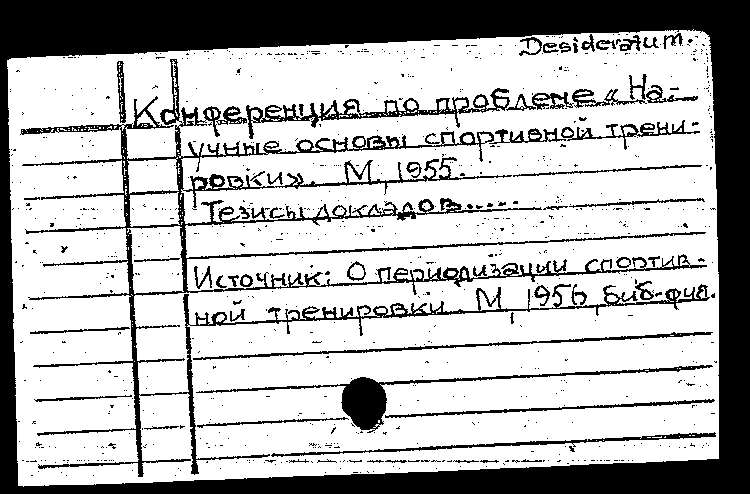 Desideratum.
Конференция по проблеме « На-
учные основы спортивной трени-
ровки». М, 1955.
Тезисы докладов.....
Источник: О периодизации спортив-
ной тренировки. М, 1956, биб-фия.